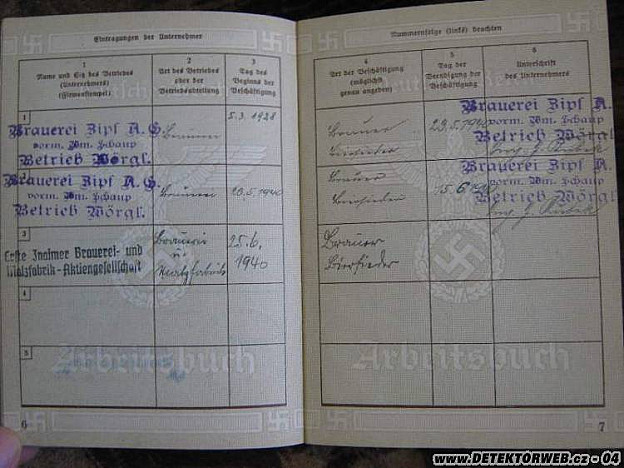 Eintragungen der Unternehmer
1
Name und Sitz des Betriebes
(Unternehmers)
(Firmenstempel)
2
Art des Betriebes
oder der
Betriebsabteilung
3
Tag des
Beginns der
Beschäftigung
1
Brauerei Zipf A.G.
vorm. Wm. Schaup
Betrieb Wörgl.
Brauerei
5.3.1928
2
Brauerei Zipf A.G.
vorm. Wm. Schaup
Betrieb Wörgl.
Brauerei
20.5.1940
3
Erste Znaimer Brauerei- und
Malzfabrik-Aktiengesellschaft
Brauerei
u.
Malzfabrik
25.6.
1940
4
5
Arbeitsbuch
6
Nummernfolge (links) beachten
4
Art der Beschäftigung
(möglichst
genau angeben)
5
Tag der
Beendigung der
Beschäftigung
6
Unterschrift
des Unternehmers
Brauer
Biersieder
Brauerei Zipf A.
vorm. Wm. Schaup
Betrieb Wörgl.
Brauer
Biersieder
15.6.1940
Brauerei Zipf A.
vorm. Wm. Schaup
Betrieb Wörgl.
Brauer
Biersieder
Arbeitsbuch
7
www.DETEKTORWEB.cz - 04